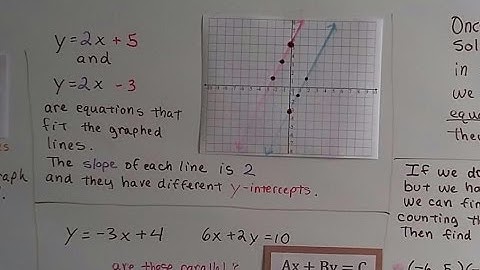 y=2x + 5
and
y=2x - 3
are equations that
fit the graphed
lines.
The slope of each line is 2
and they have different y-intercepts.
y = -3x + 4
6x + 2y = 10
are these parallel?
Ax + By = C
Onc
sol
in
we
equa
the
If we do
but we ha
we can fin
counting th
Then find
raph